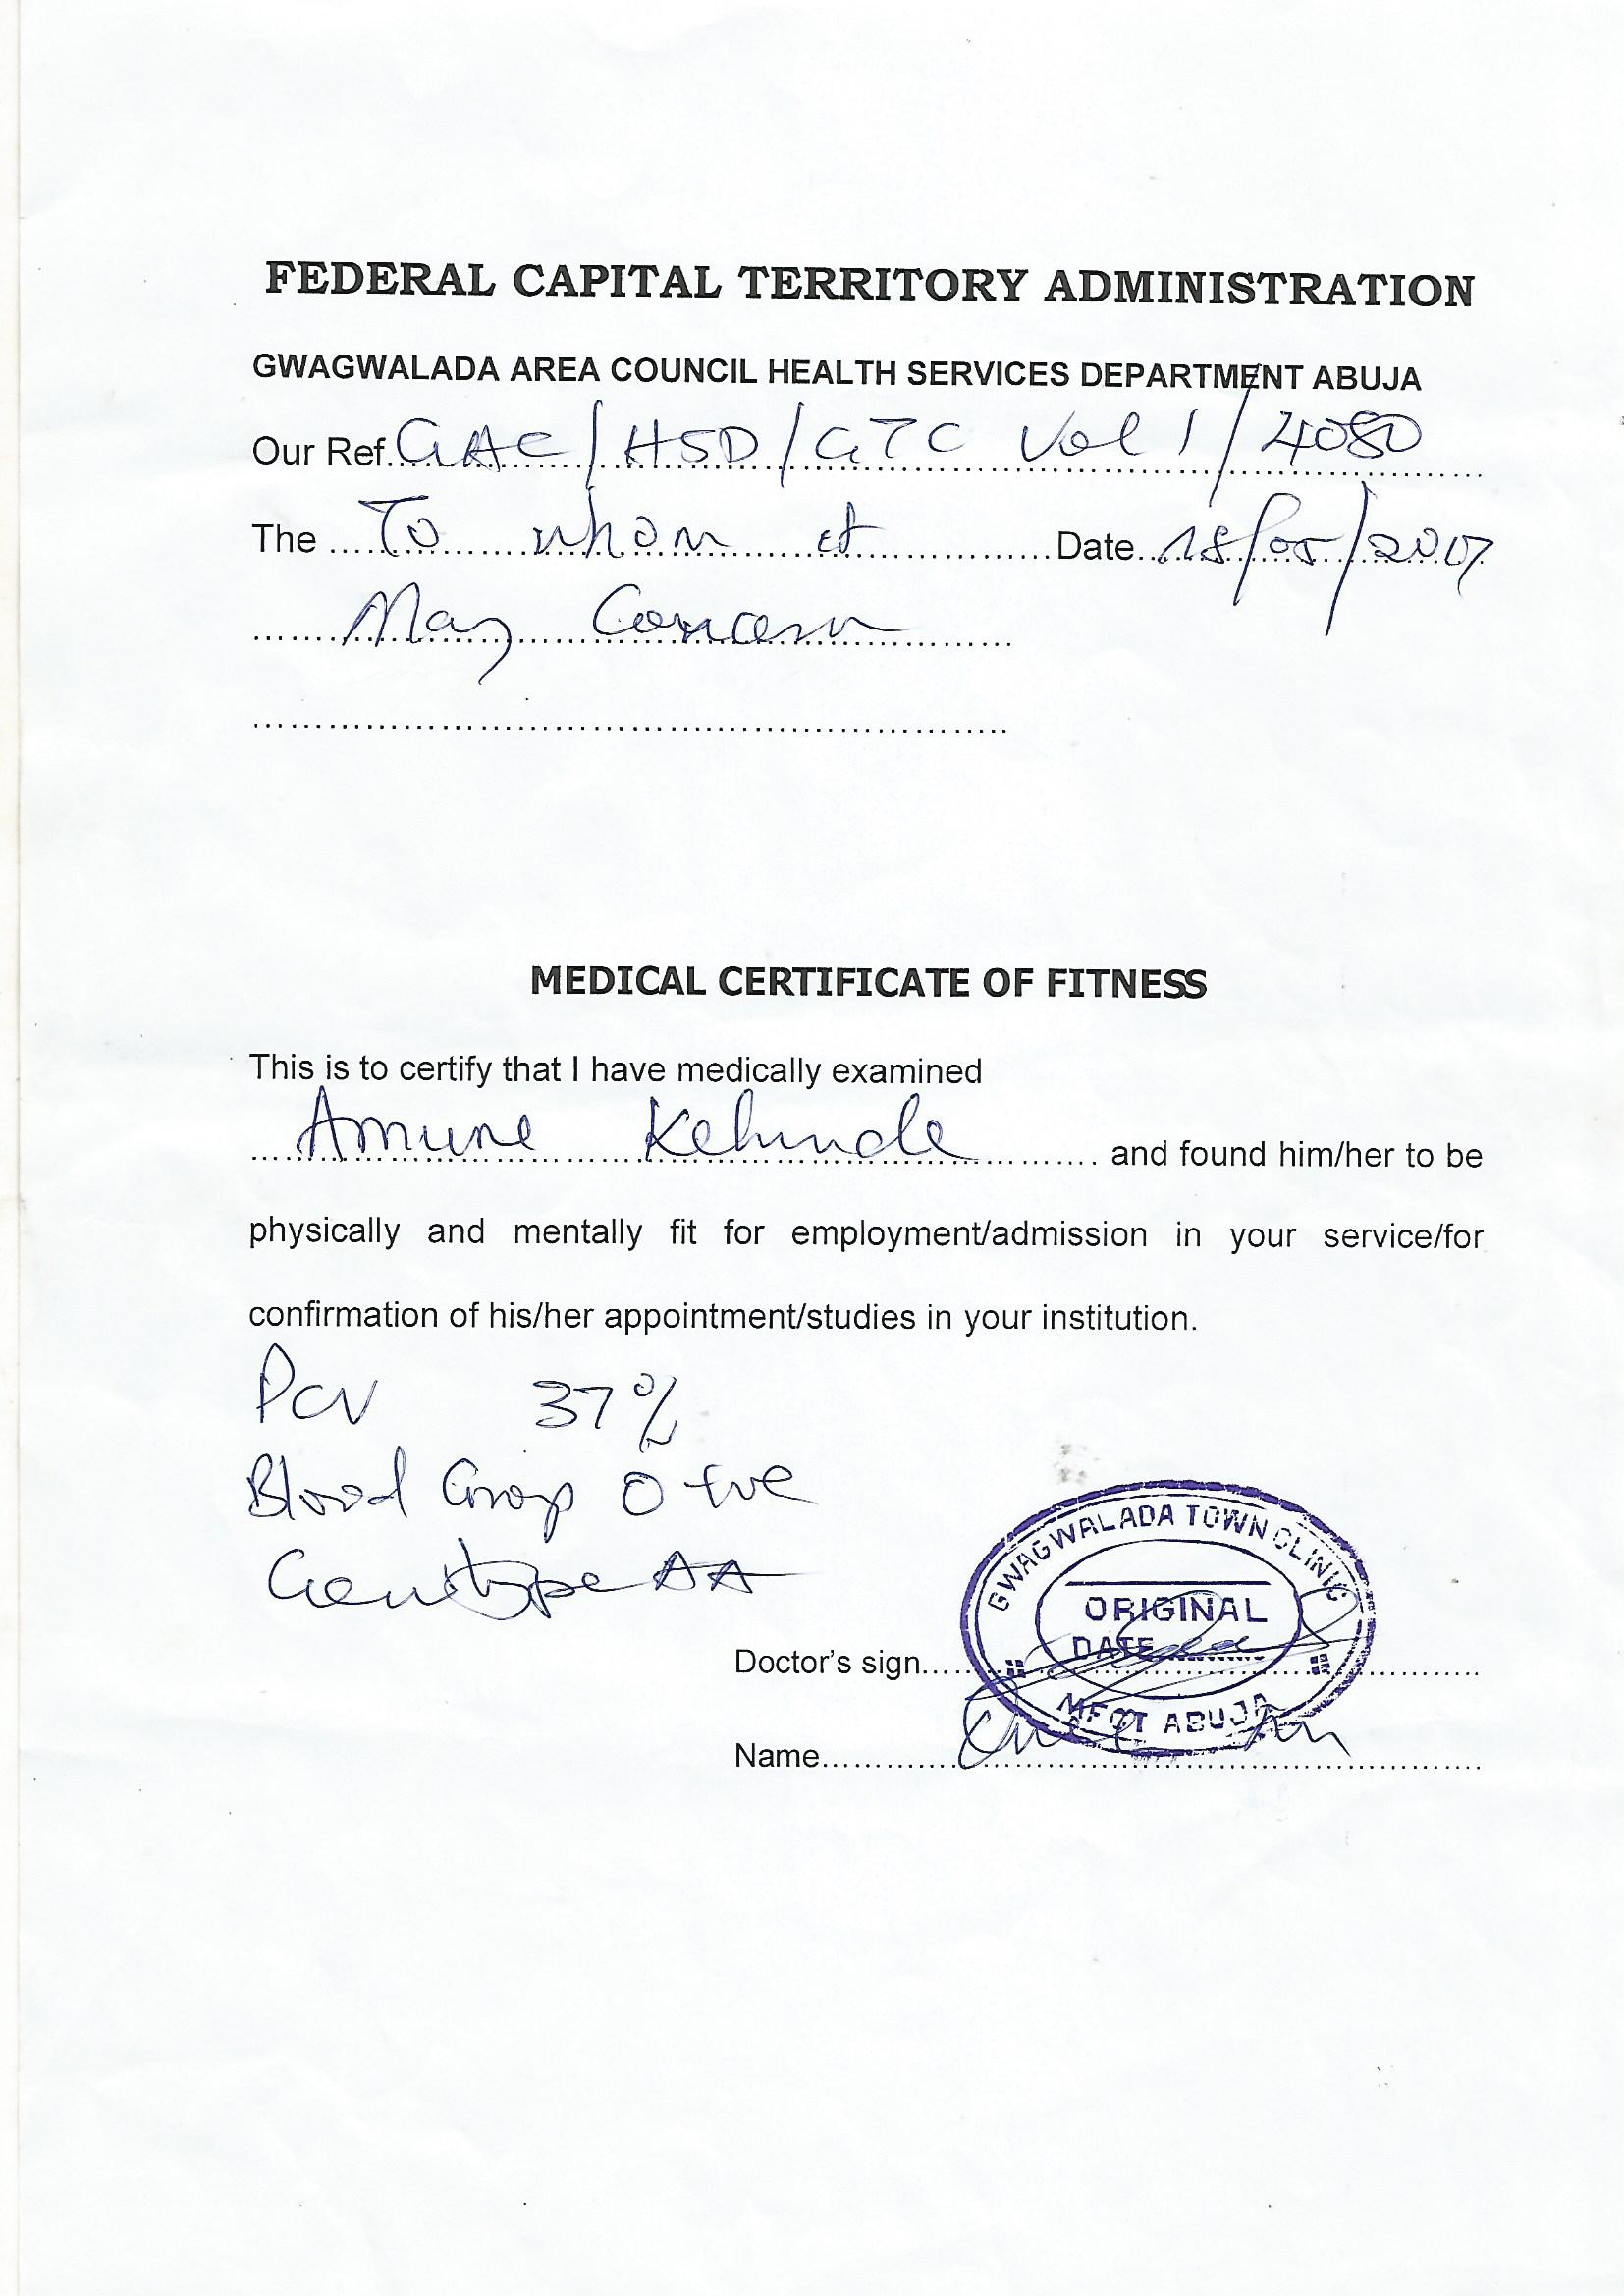 FEDERAL CAPITAL TERRITORY ADMINISTRATION
GWAGWALADA AREA COUNCIL HEALTH SERVICES DEPARTMENT ABUJA
Our Ref. GAC/HSD/GTC Vol 1/4080
The To whom it Date 18/05/2017
May Concern
MEDICAL CERTIFICATE OF FITNESS
This is to certify that I have medically examined
Amune Kehinde and found him/her to be
physically and mentally fit for employment/admission in your service/for
confirmation of his/her appointment/studies in your institution.
PCV 37%
Blood Group O +ve
Genotype AA
GWAGWALADA TOWN CLINIC
ORIGINAL
DATE
MFCT ABUJA
Doctor's sign
Name